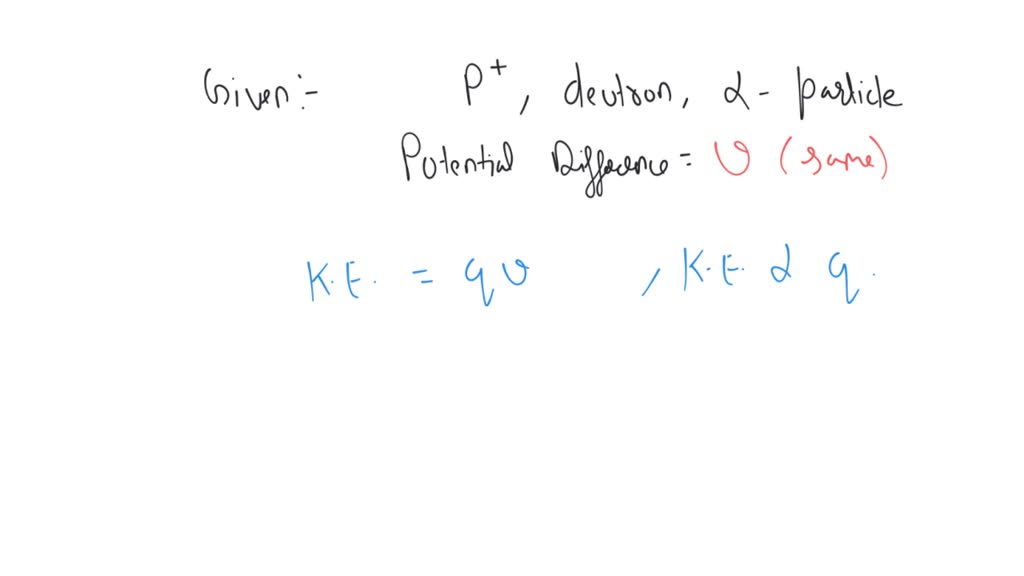 Given:- P+, deutron, α - particle
Potential Difference = V (same)
K.E. = qV , K.E. α q.